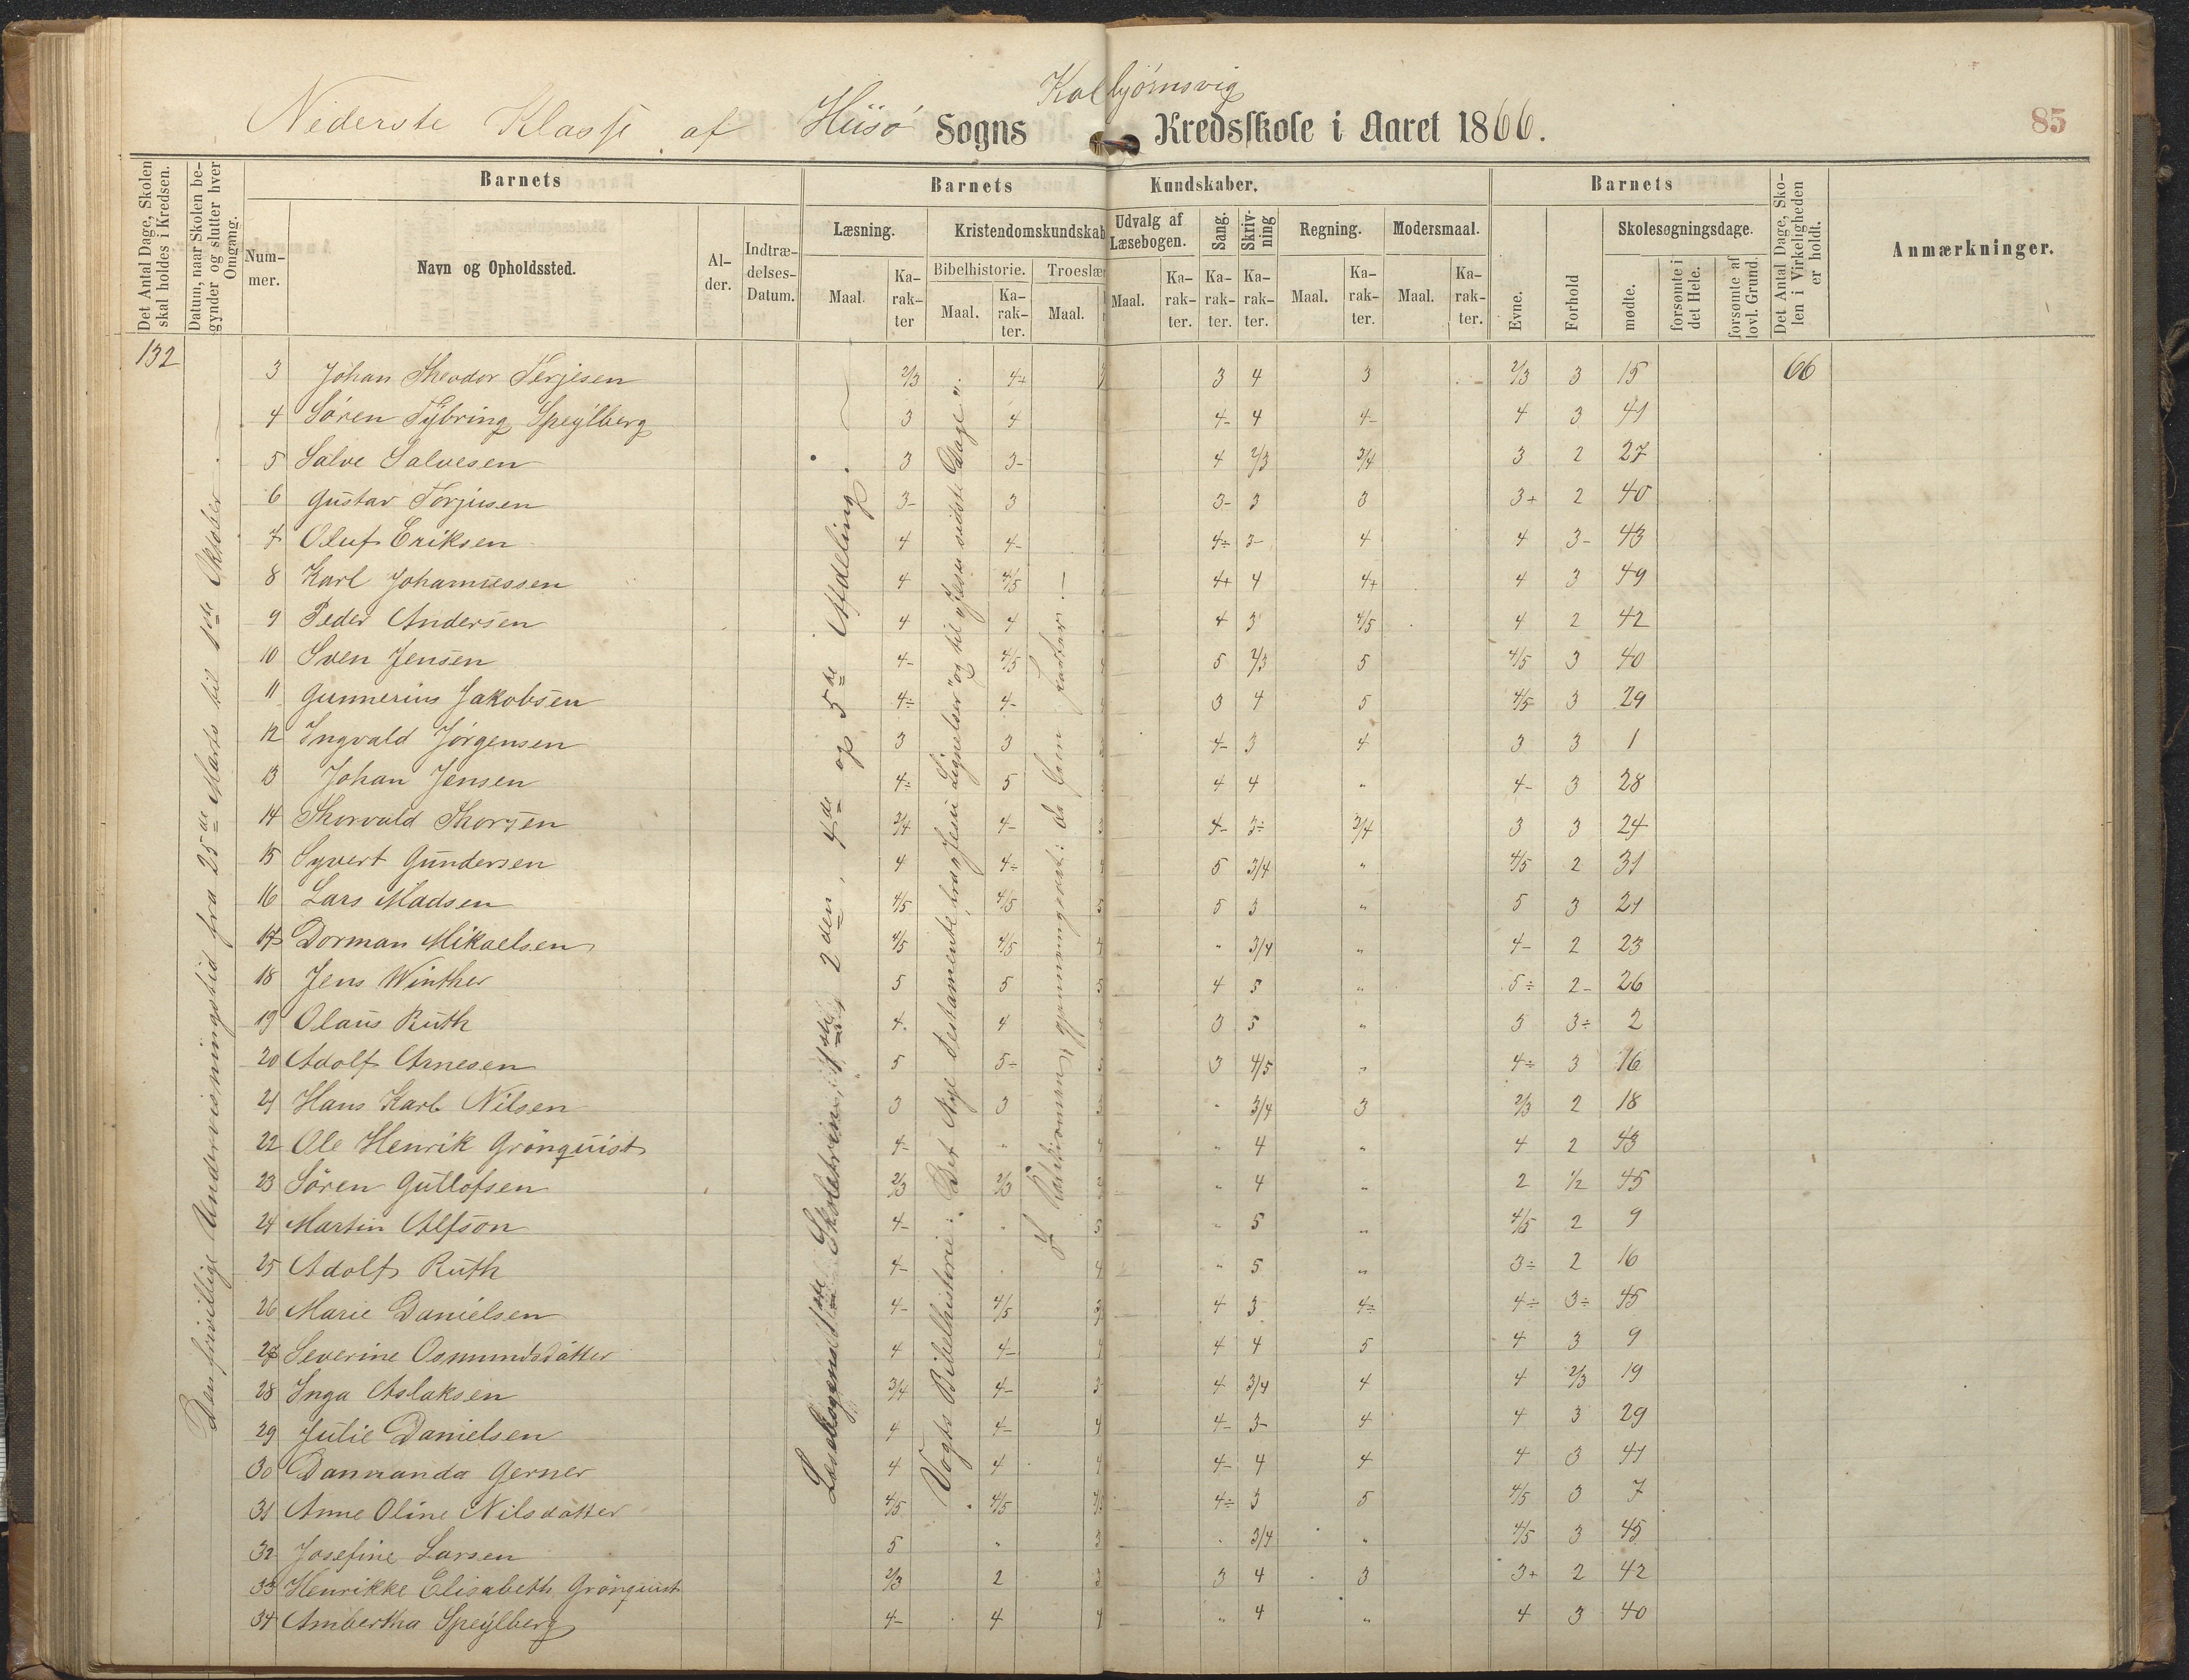 Kolbjörnsvig
Nederste Klasse af Hüsö Sogns Kredsskole i Aaret 1866.
85
Det Antal Dage, Skolen skal holdes i Kredsen.
Datum, naar Skolen begynder og slutter hver Omgang.
Barnets
Nummer.
Navn og Opholdssted.
Alder.
Indtrædelses-Datum.
Barnets Kundskaber.
Læsning.
Maal.
Karakter
Kristendomskundskab
Bibelhistorie.
Maal.
Karakter.
Troeslær
Maal.
Udvalg af Læsebogen.
Maal.
Karakter.
Sang.
Karakter.
Skrivning
Karakter.
Regning.
Maal.
Karakter.
Modersmaal.
Maal.
Karakter.
Barnets
Evne.
Forhold
Skolesøgningsdage.
mødte.
forsømte i det Hele.
forsømte af lovl. Grund.
Det Antal Dage, Skolen i Virkeligheden er holdt.
Anmærkninger.
132
Den frivillige Undervisningstid fra 25de Marts til 1ste Oktober
Læsebogens 1ste Skoletrin, 1ste, 2den, 4de og 5te Afdeling.
Vogts Bibelhistorie: Det Nye Testamente fra "Jesu Lignelser" og til "Jesu sidste Dage".
3 Johan Theodor Terjesen 2/3 4+ 3 4 3 2/3 3 15 66
4 Sören Tybring Speylberg 3 4 4- 4 4- 4 3 41
5 Salve Salvesen 3 3- 4 2/3 3/4 3 2 27
6 Gustav Torjusen 3- 3 3- 3 3 3+ 2 40
7 Oluf Eriksen 4 4- 4÷ 3- 4 4 3- 43
8 Karl Johannessen 4 4/5 4+ 4 4+ 4 3 49
9 Peder Andersen 4 4 4 3 4/5 4 2 42
10 Sven Jensen 4- 4/5 5 2/3 5 4/5 3 40
11 Gunnerius Jakobsen 4÷ 4- 3 4 5 4/5 3 29
12 Ingvald Jörgensen 3 3 4- 3 4 3 3 1
13 Johan Jensen 4÷ 5 4 4 " 4- 3 28
14 Thorvald Thorsen 3/4 4- 4- 3÷ 3/4 3 3 24
15 Syvert Gundersen 4 4÷ 5 3/4 " 4/5 2 31
16 Lars Madsen 4/5 4/5 5 3 " 5 3 21
17 Dorman Mikaelsen 4/5 4/5 " 3/4 " 4- 2 23
18 Jens Winther 5 5 4 5 " 5÷ 2- 26
19 Olaus Ruth 4. 4 3 5 " 3 3÷ 2
20 Adolf Arnesen 5 5÷ 3 4/5 " 4÷ 3 16
21 Hans Karl Nilsen 3 3 " 3/4 3 2/3 2 18
22 Ole Henrik Grönquist 4- " " 4 " 4 2 43
23 Sören Gutlofsen 2/3 2/3 " 4 " 2 1/2 45
24 Martin Alfson 4- " " 5 " 4/5 2 9
25 Adolf Ruth 4- " 5 " 3÷ 2 16
26 Marie Danielsen 4- 4/5 4 3 4÷ 4÷ 3÷ 45
27 Severine Osmundsdatter 4 4- 4 4 5 4 3 9
28 Inga Aslaksen 3/4 4- 4 3/4 4 4 2/3 19
29 Julie Danielsen 4 4- 4- 3- 4 4 3 29
30 Dannanda Gerner 4 4 4- 4 4 4 3 41
31 Anne Oline Nilsdatter 4/5 4/5 4÷ 3 5 4/5 3 7
32 Josefine Larsen 5 " " 3/4 " 4/5 3 45
33 Henrikke Elisabeth Grönquist 2/3 2 3 4 3 3+ 2 42
34 Ambertha Speylberg 4- 4 " 4 " 4 3 40